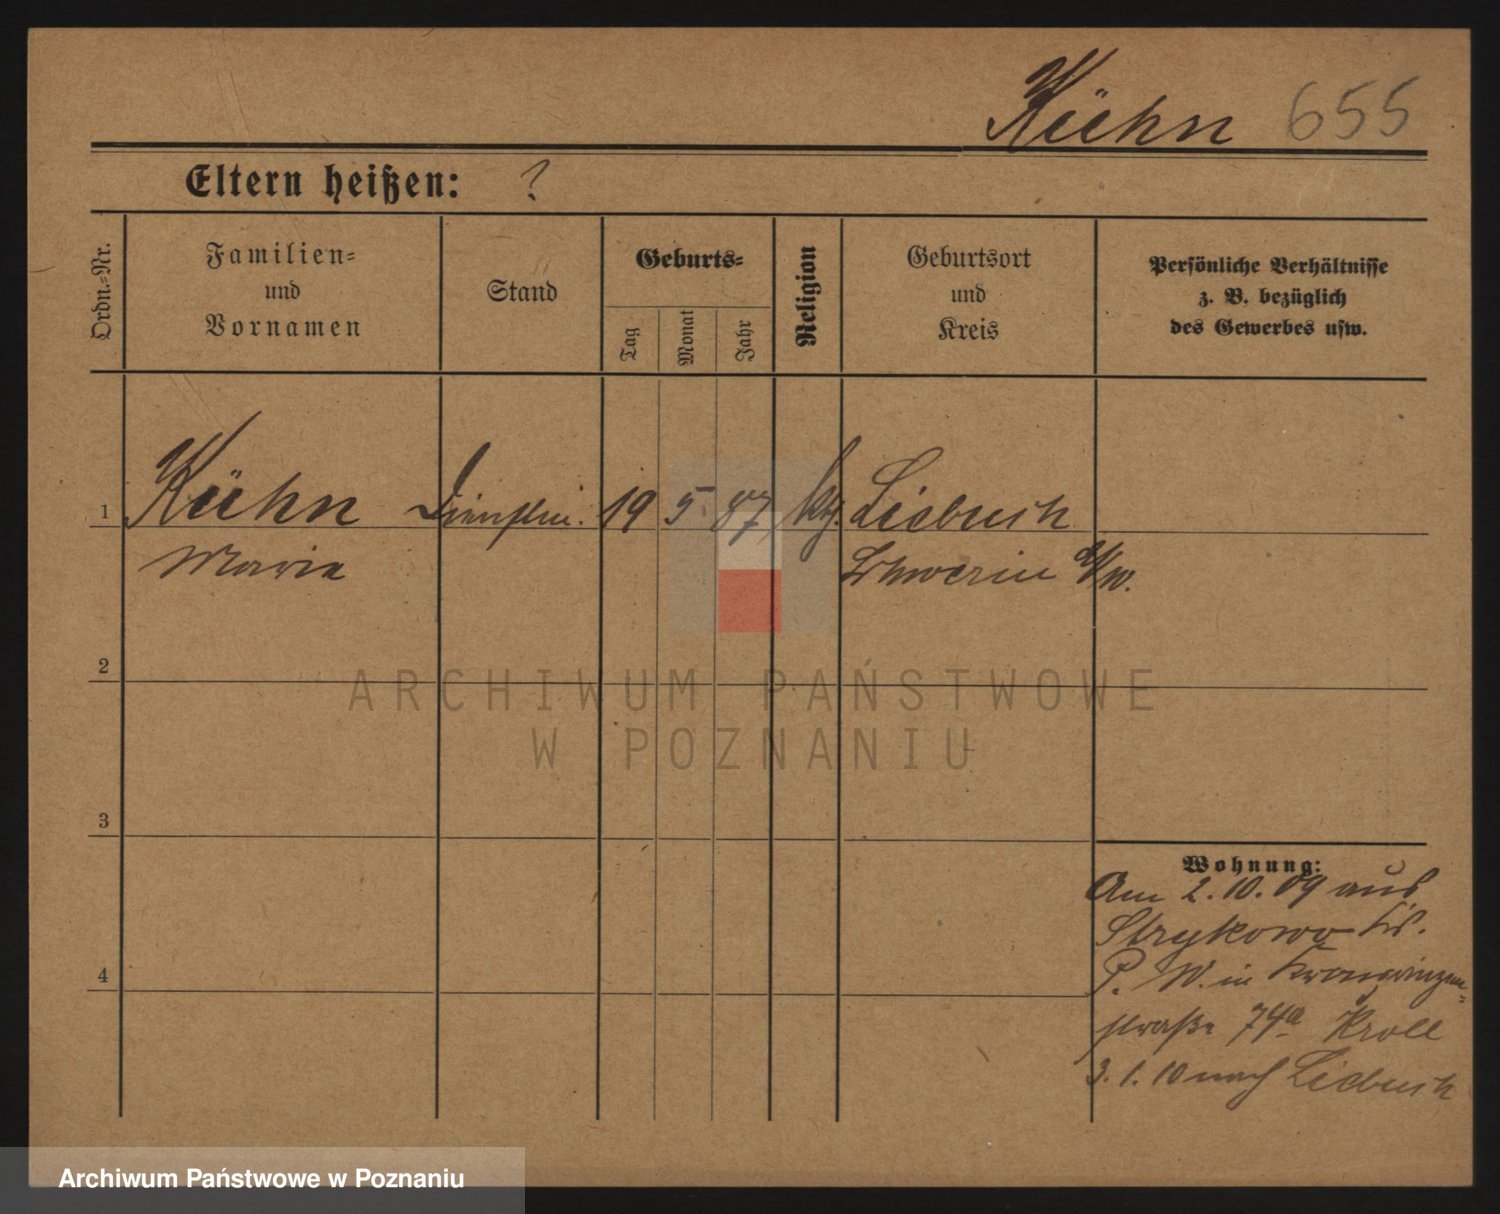 Kühn 655
Eltern heißen: ?
Ordn.-Nr.
Familien-
und
Vornamen
Stand
Geburts-
Tag
Monat
Jahr
Religion
Geburtsort
und
Kreis
Persönliche Verhältnisse
z. B. bezüglich
des Gewerbes usw.
1 Kühn 19 5. 87 Liebuch
Marie Schwerin a/W.
2
ARCHIWUM PAŃSTWOWE
W POZNANIU
3
Wohnung:
Am 2.10.09 aus
Strykowo Kr.
P. W. in Kronprinzen-
straße 74a Kroll
3.1.10 nach Liebuch
4
Archiwum Państwowe w Poznaniu